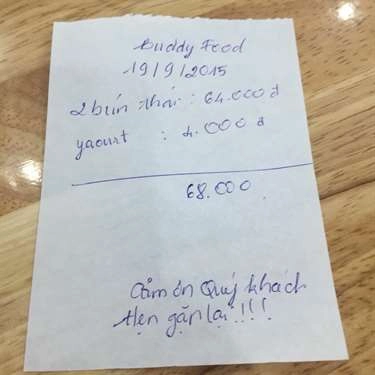 Buddy Food
19/9/2015
2 bún thái : 64.000 đ
yaourt : 4.000 đ
68.000
Cảm ơn Quý khách
Hẹn gặp lại!!!